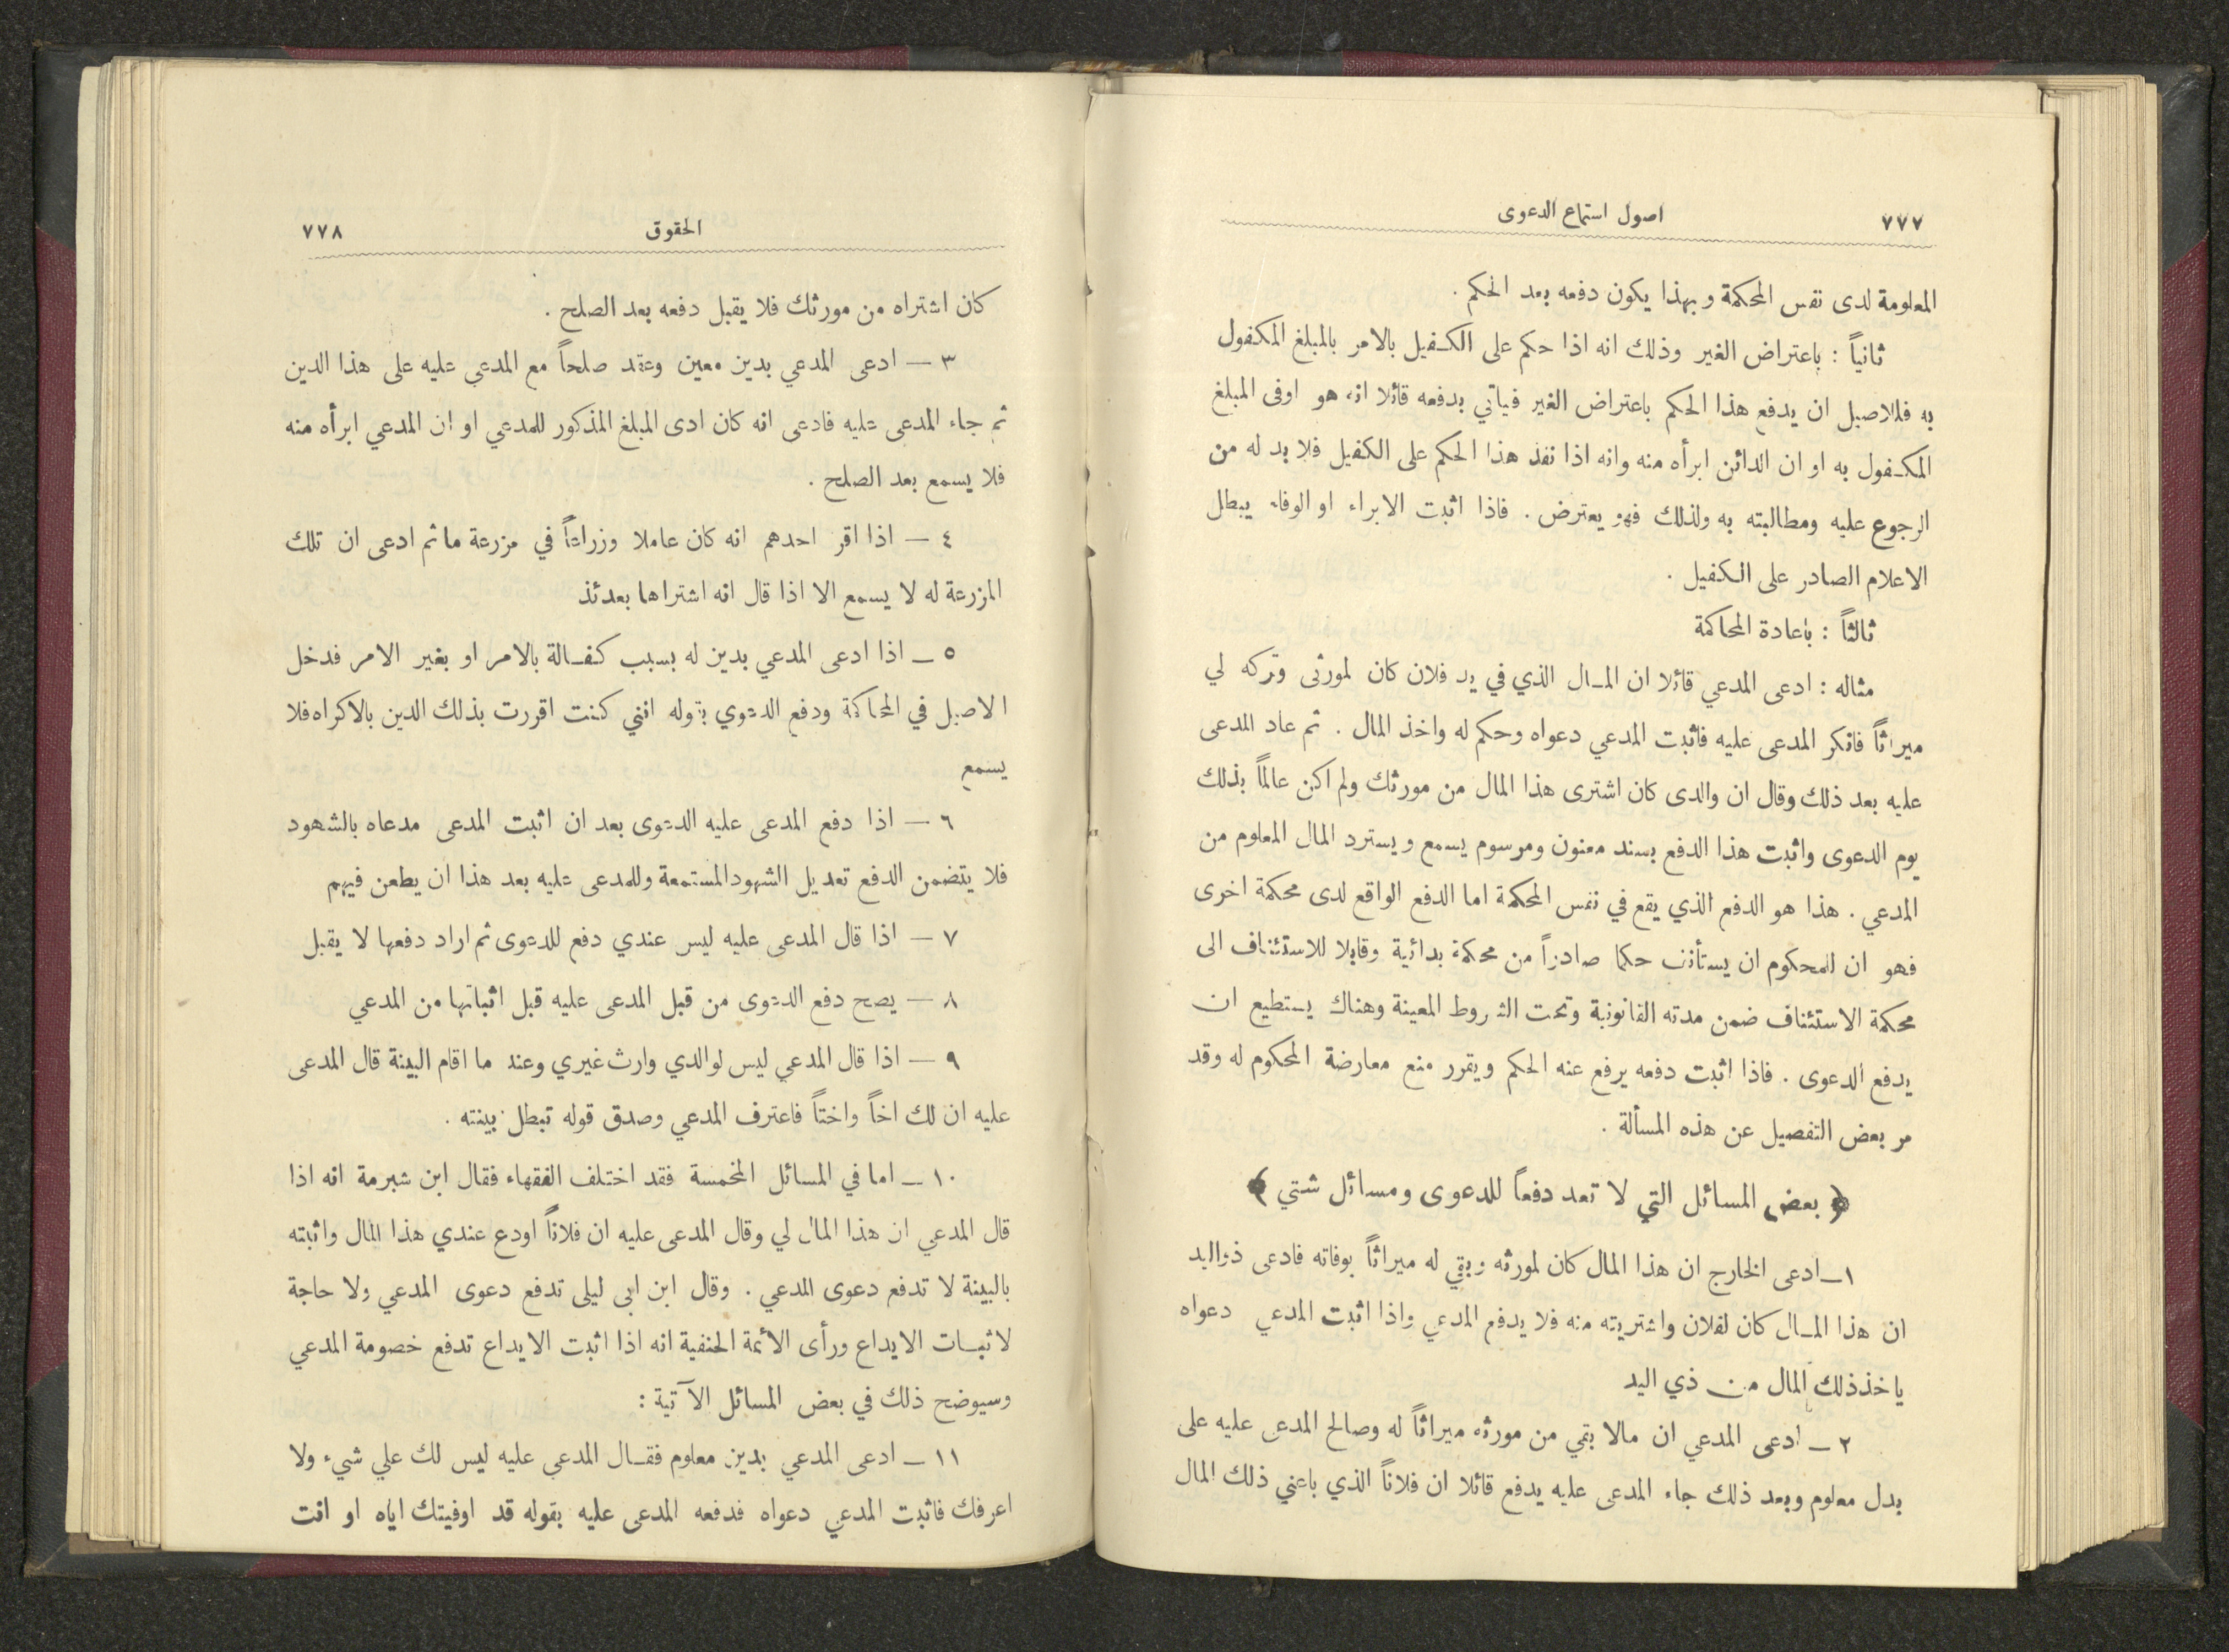 ٧٧٧ اصول استماع الدعوى
المعلومة لدى نفس المحكمة وبهذا يكون دفعه بعد الحكم .
ثانياً : باعتراض الغير وذلك انه اذا حكم على الكفيل بالامر بالمبلغ المكفول
به فللاصيل ان يدفع هذا الحكم باعتراض الغير فيأتي بدفعه قائلا انه هو اوفى المبلغ
المكفول به او ان الدائن ابرأه منه وانه اذا نفذ هذا الحكم على الكفيل فلا بد له من
الرجوع عليه ومطالبته به ولذلك فهو يعترض . فاذا اثبت الابراء او الوفاء يبطل
الاعلام الصادر على الكفيل .
ثالثاً : باعادة المحاكمة
مثاله : ادعى المدعي قائلا ان المال الذي في يد فلان كان لمورثى وتركه لي
ميراثاً فانكر المدعى عليه فاثبت المدعي دعواه وحكم له واخذ المال . ثم عاد المدعى
عليه بعد ذلك وقال ان والدى كان اشترى هذا المال من مورثك ولم اكن عالماً بذلك
يوم الدعوى واثبت هذا الدفع بسند معنون ومرسوم يسمع ويسترد المال المعلوم من
المدعي . هذا هو الدفع الذي يقع في نفس المحكمة اما الدفع الواقع لدى محكمة اخرى
فهو ان للمحكوم ان يستأنف حكما صادراً من محكمة بدائية وقابلا للاستئناف الى
محكمة الاستئناف ضمن مدته القانونية وتحت الشروط المعينة وهناك يستطيع ان
يدفع الدعوى . فاذا اثبت دفعه يرفع عنه الحكم ويقرر منع معارضة المحكوم له وقد
مر بعض التفصيل عن هذه المسألة .
﴿ بعض المسائل التي لا تعد دفعاً للدعوى ومسائل شتي ﴾
١ – ادعى الخارج ان هذا المال كان لمورثه وبقي له ميراثاً بوفاته فادعى ذو اليد
ان هذا المال كان لفلان واشتريته منه فلا يدفع المدعي واذا اثبت المدعي دعواه
ياخذ ذلك المال من ذي اليد
٢ – ادعى المدعي ان مالا بقي من مورثه ميراثاً له وصالح المدعى عليه على
بدل معلوم وبعد ذلك جاء المدعى عليه يدفع قائلا ان فلاناً الذي باعني ذلك المال
الحقوق ٧٧٨
كان اشتراه من مورثك فلا يقبل دفعه بعد الصلح .
٣ – ادعى المدعي بدين معين وعقد صلحاً مع المدعي عليه على هذا الدين
ثم جاء المدعى عليه فادعى انه كان ادى المبلغ المذكور للمدعي او ان المدعي ابرأه منه
فلا يسمع بعد الصلح .
٤ – اذا اقر احدهم انه كان عاملا وزراعاً في مزرعة ما ثم ادعى ان تلك
المزرعة له لا يسمع الا اذا قال انه اشتراها بعدئذ
٥ – اذا ادعى المدعي بدين له بسبب كفالة بالامر او بغير الامر فدخل
الاصيل في المحاكمة ودفع الدعوي بقوله انني كنت اقررت بذلك الدين بالاكراه فلا
يسمع
٦ – اذا دفع المدعى عليه الدعوى بعد ان اثبت المدعى مدعاه بالشهود
فلا يتضمن الدفع تعديل الشهود المستمعة وللمدعى عليه بعد هذا ان يطعن فيهم
٧ – اذا قال المدعى عليه ليس عندي دفع للدعوى ثم اراد دفعها لا يقبل
٨ – يصح دفع الدعوى من قبل المدعى عليه قبل اثباتها من المدعي
٩ – اذا قال المدعي ليس لوالدي وارث غيري وعند ما اقام البينة قال المدعى
عليه ان لك اخاً واختاً فاعترف المدعي وصدق قوله تبطل بينته .
١٠ – اما في المسائل المخمسة فقد اختلف الفقهاء فقال ابن شبرمة انه اذا
قال المدعي ان هذا المال لي وقال المدعى عليه ان فلاناً اودع عندي هذا المال واثبته
بالبينة لا تدفع دعوى المدعي . وقال ابن ابى ليلى تدفع دعوى المدعي ولا حاجة
لاثبات الايداع ورأى الأئمة الحنفية انه اذا اثبت الايداع تدفع خصومة المدعي
وسيوضح ذلك في بعض المسائل الآتية :
١١ – ادعى المدعي بدين معلوم فقال المدعي عليه ليس لك علي شيء ولا
اعرفك فاثبت المدعي دعواه فدفعه المدعى عليه بقوله قد اوفيتك اياه او انت